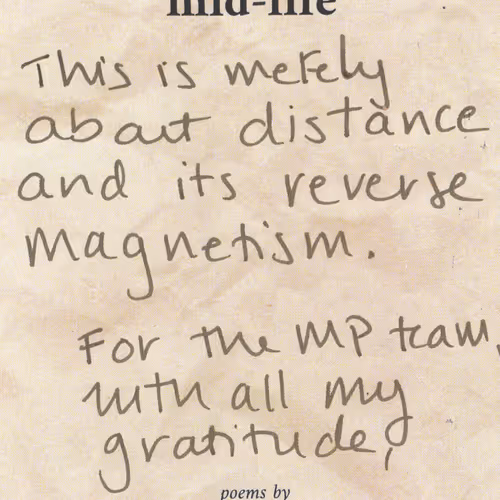 mid-life
This is merely
about distance
and its reverse
magnetism.
For the MP team,
with all my
gratitude,
poems by